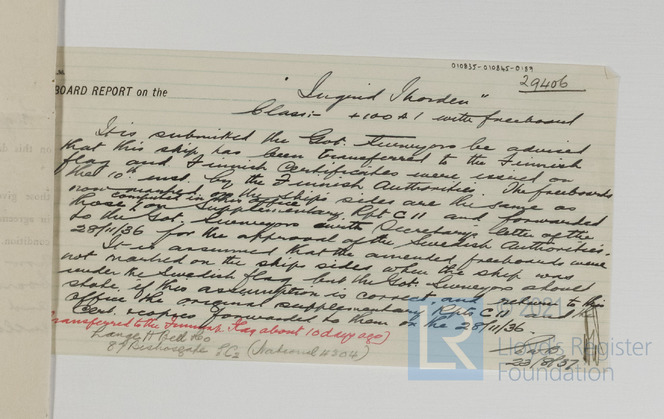 010835-010845-0189
29406
BOARD REPORT on the
"Ingrid Thorden"
Class:- +100A1 with freeboard
It is submitted the Got. Surveyors be advised
that this ship has been transferred to the Finnish
flag and Finnish Certificates were issued on
the 10th inst. by the Finnish Authorities. The freeboards
now marked on the ship's sides are the same as
computed in this office
those on Supplementary Rpt C 11 and forwarded
to the Got. Surveyors with Secretary's letter of the
28/11/36 for the approval of the Swedish Authorities.
It is assumed that the amended freeboards were
not marked on the ship's sides when the ship was
under the Swedish flag but the Got. Surveyors should
state if this assumption is correct and return to this
office the original supplementary Rpts C 11 and the
Cert. copies forwarded to them on the 28/11/36.
transferred to the Finnish Flag about 10 days ago)
Lange H Bell &Co
89 Bishopsgate EC2 (National 4304)
23/8/37
© 2021
LR
Lloyd's Register
Foundation